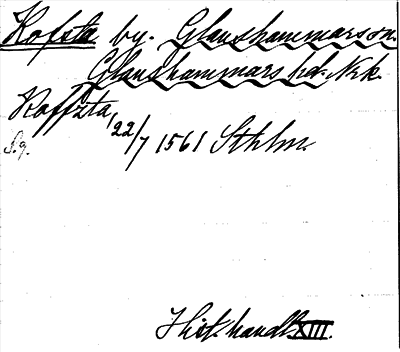 Hofsta by. Glanshammars sn.
Glanshammars hd. Nrk.
Roffzta, 22/7 1561 Sthlm.
S. 9.
Hist. handl. XIII.